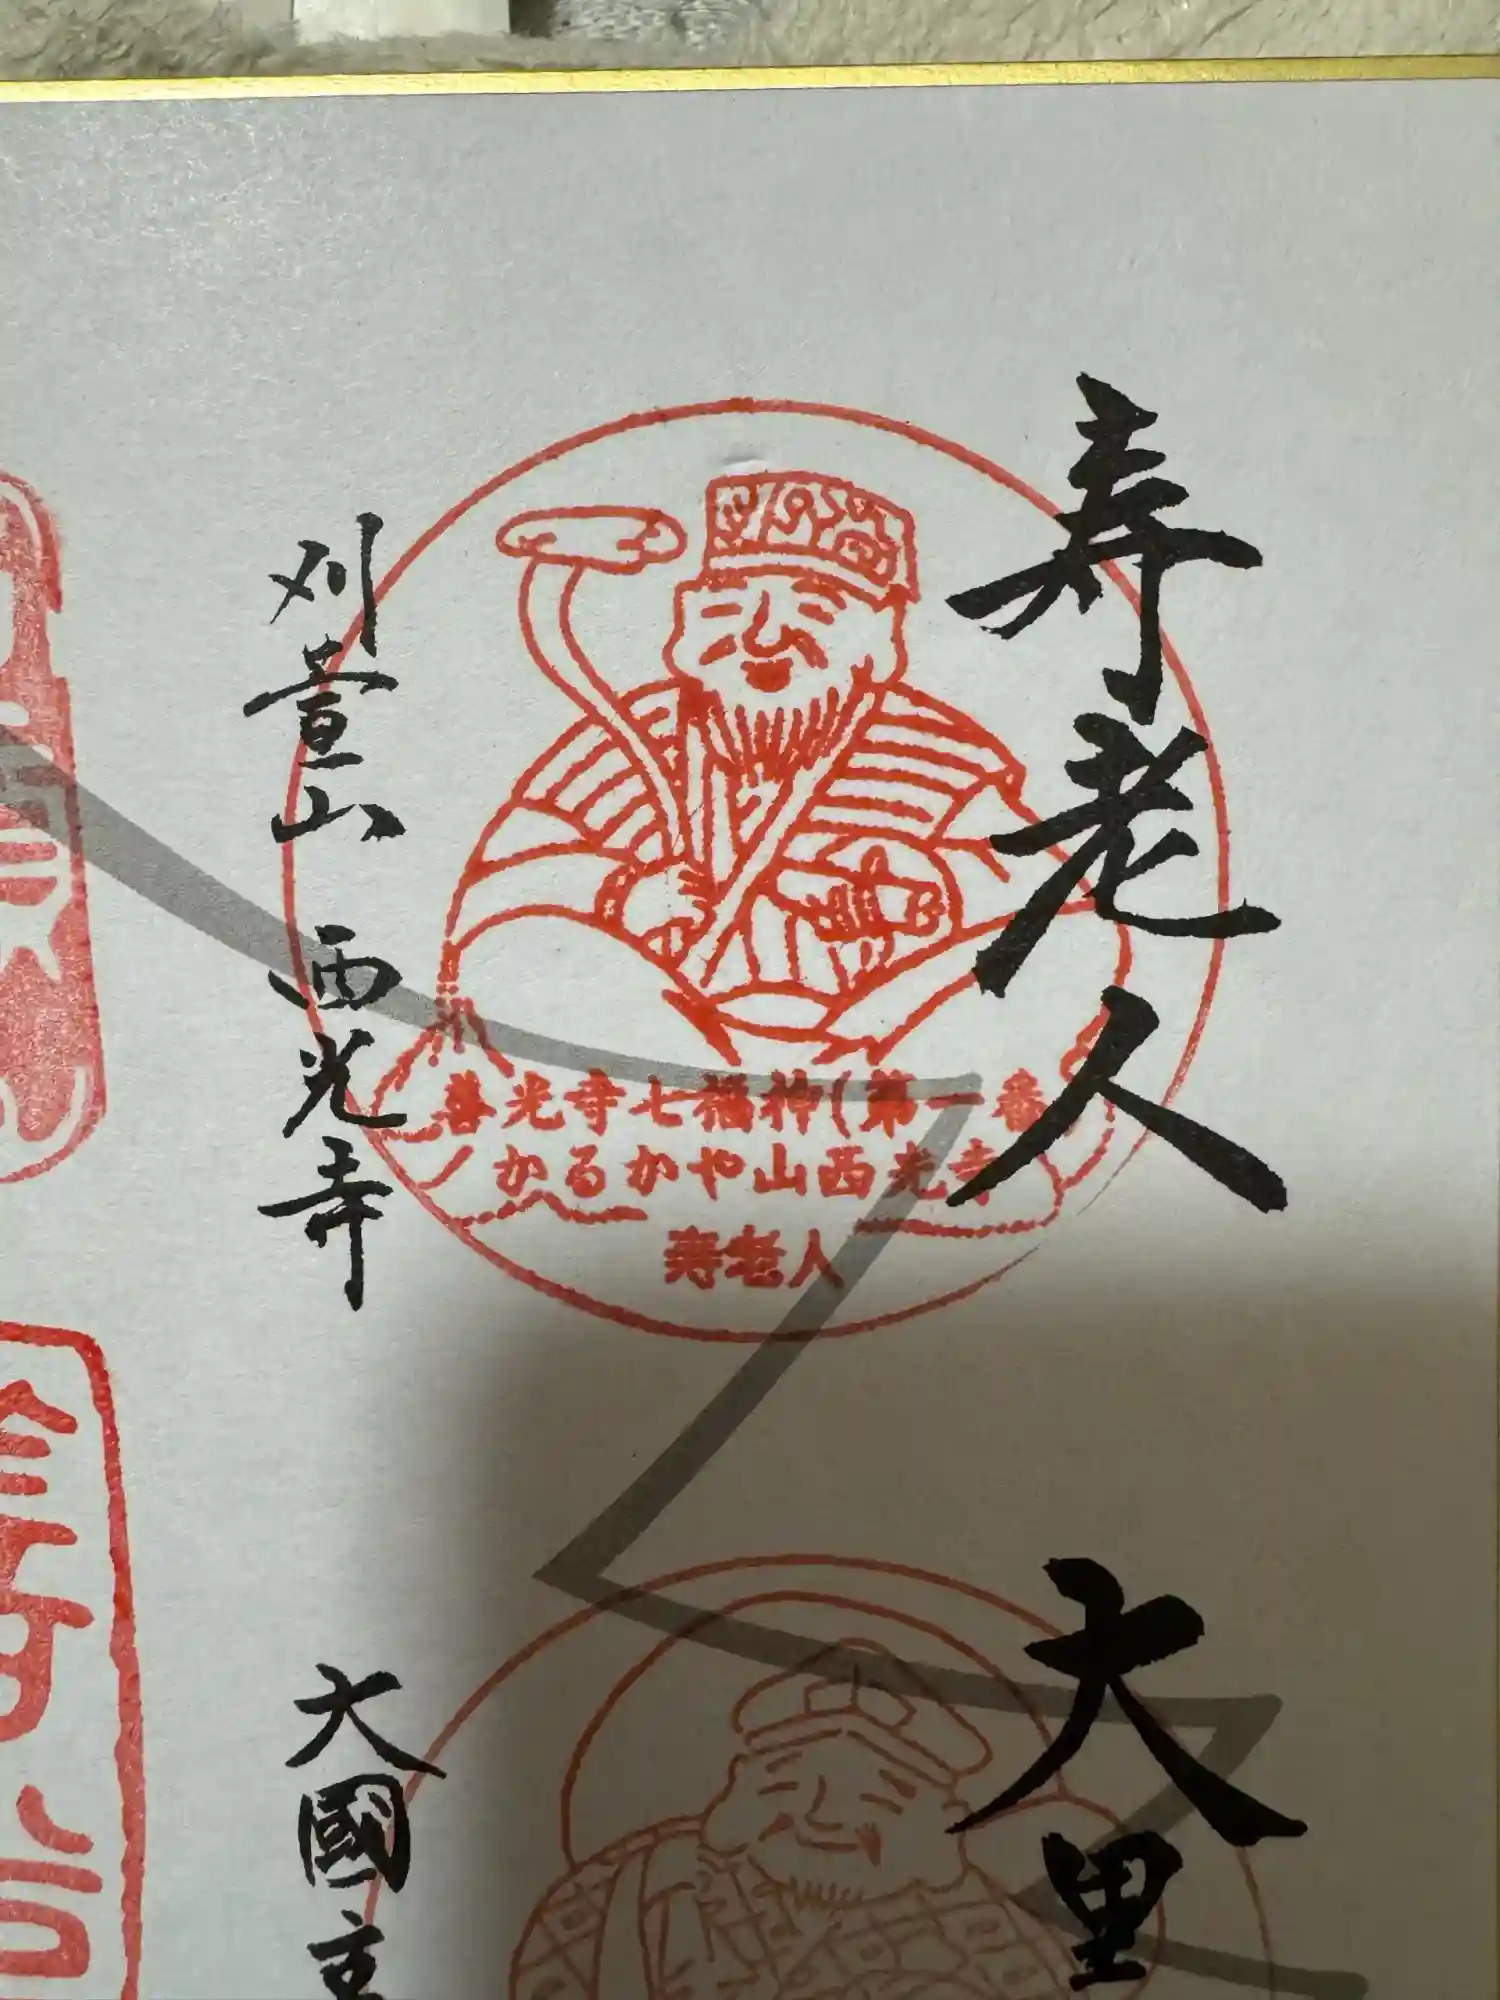 寿老人
善光寺七福神(第一番)
かるかや山西光寺
寿老人
刈萱山 西光寺
大黒
大國主